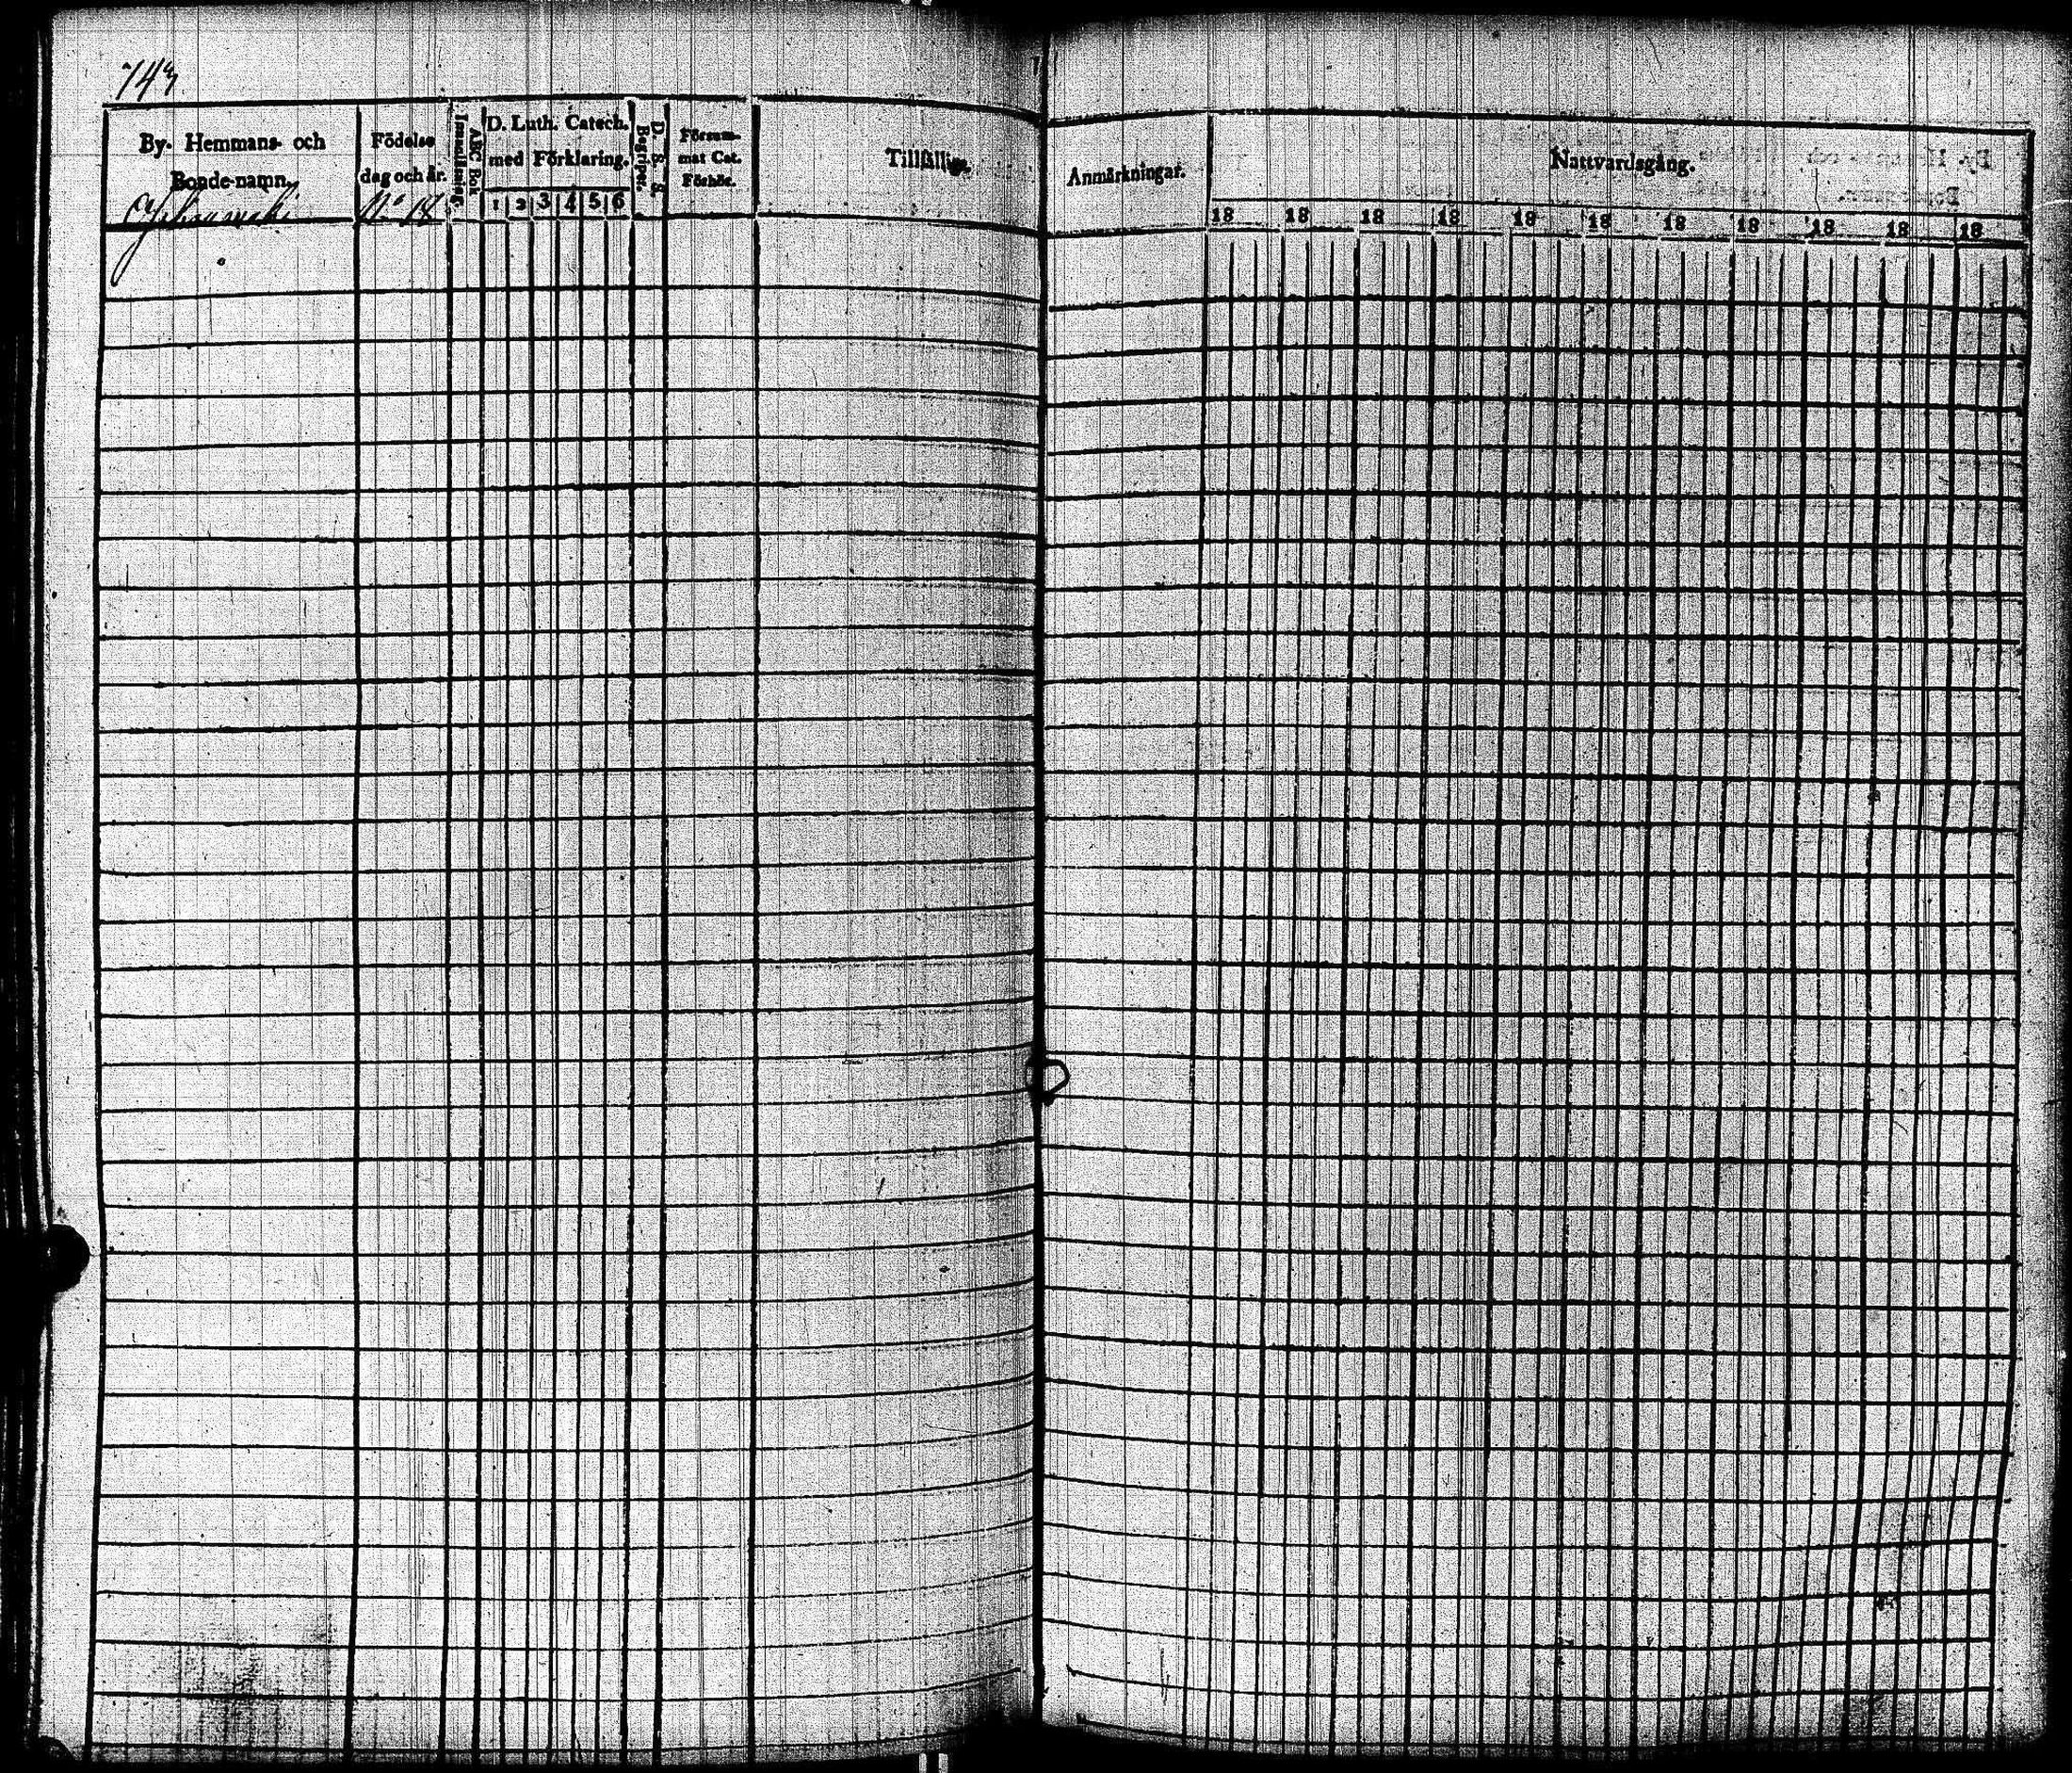 743
By. Hemmans- och
Bonde-namn.
Födelse
dag och år.
ABC Bok
Innanläsning
D. Luth. Catech.
med Förklaring.
1 2 3 4 5 6
D. S. S.
Begriper.
Försum-
mat Cat.
Förhör.
Tillfällige
No 18
Anmärkningar.
Nattvardsgång.
18 18 18 18 18 18 18 18 18 18 18